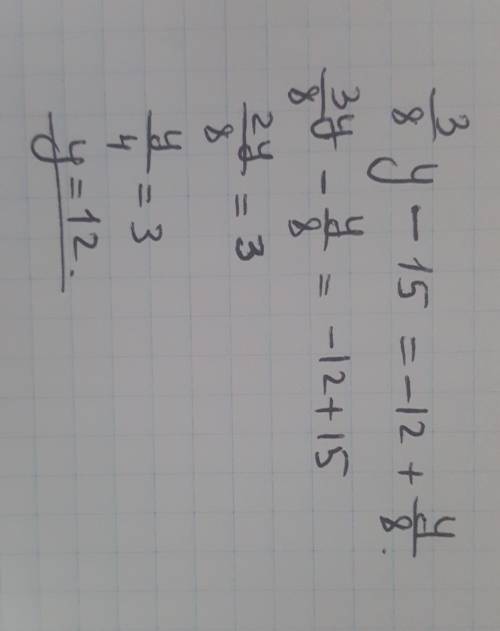 3/8 y - 15 = -12 + y/8.
3y/8 - y/8 = -12 + 15
2y/8 = 3
y/4 = 3
y = 12.